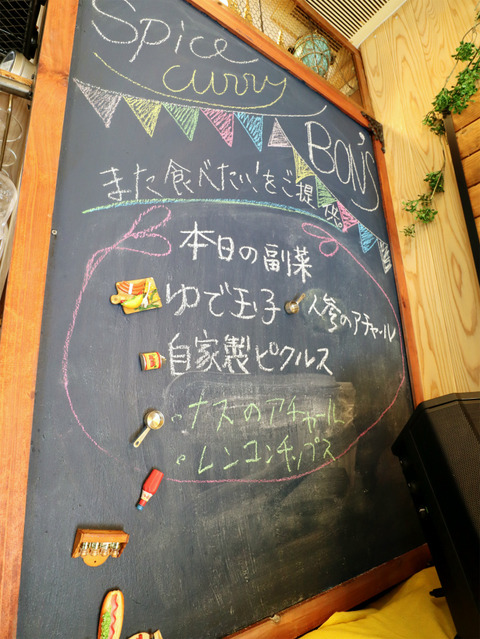 Spice
curry
BON'S
また食べたい!をご提供。
本日の副菜
ゆで玉子
人参のアチャール
自家製ピクルス
ナスのアチャール
レンコンチップス